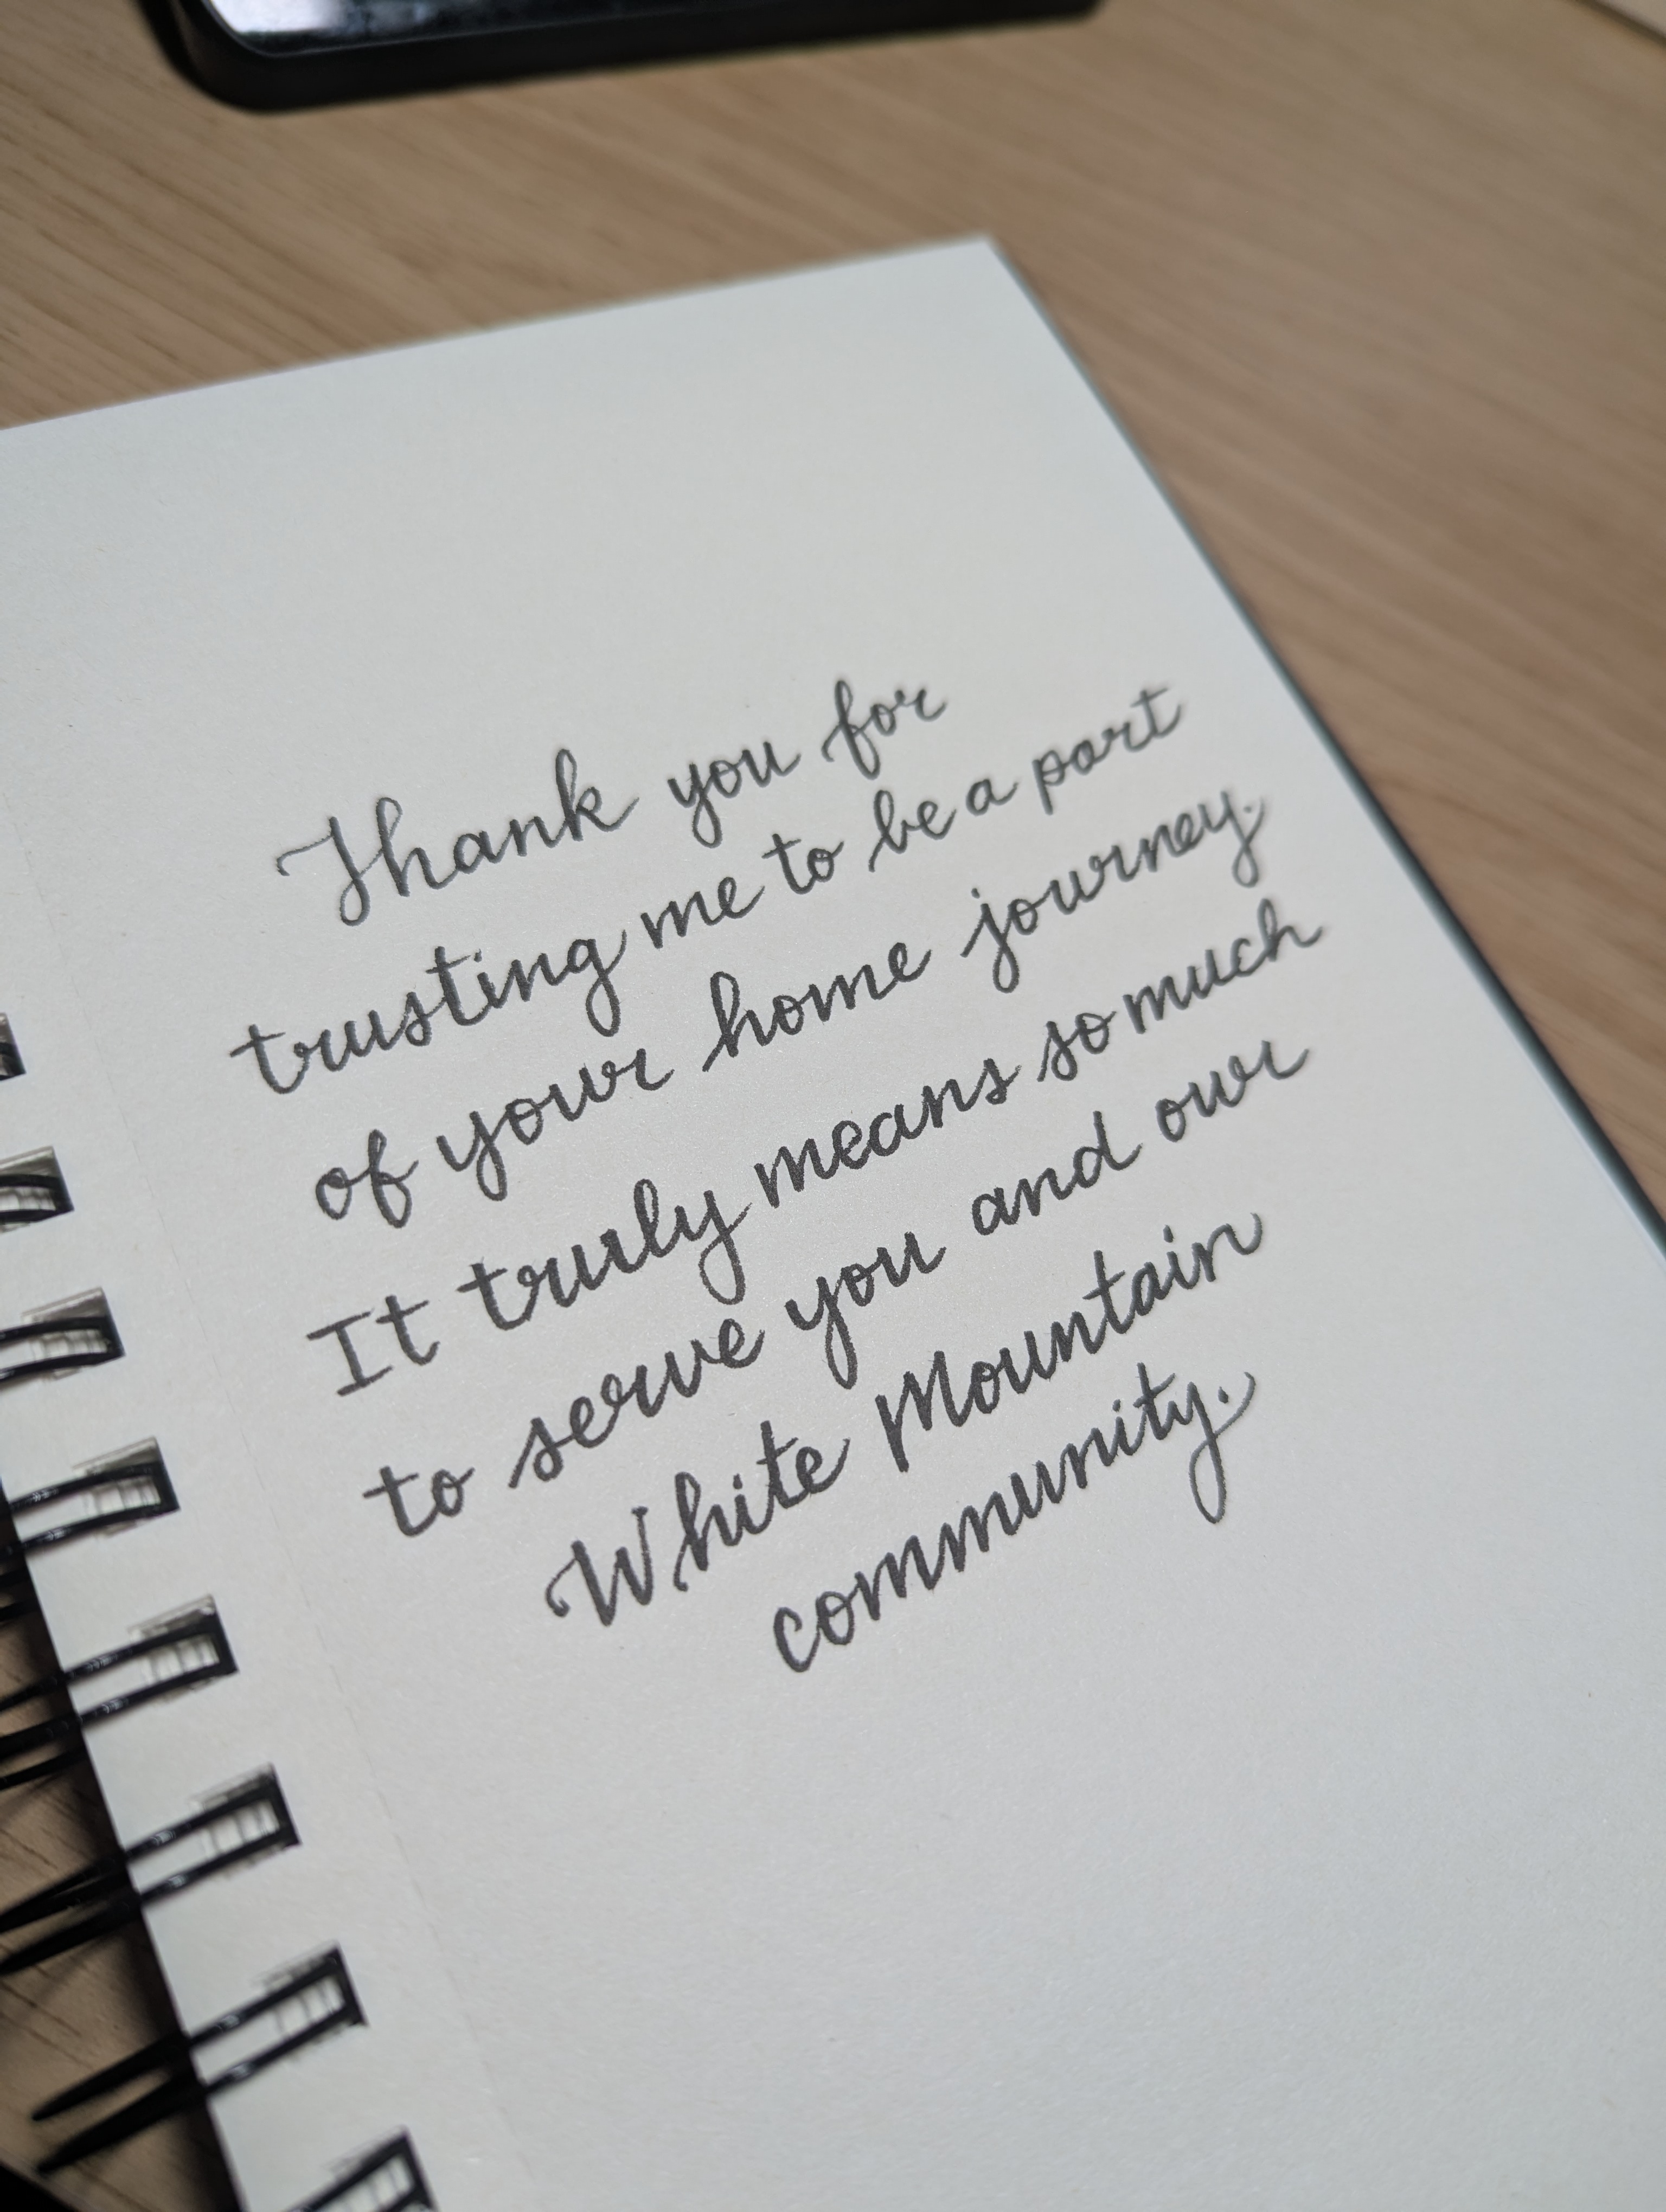 Thank you for
trusting me to be a part
of your home journey.
It truly means so much
to serve you and our
White Mountain
community.